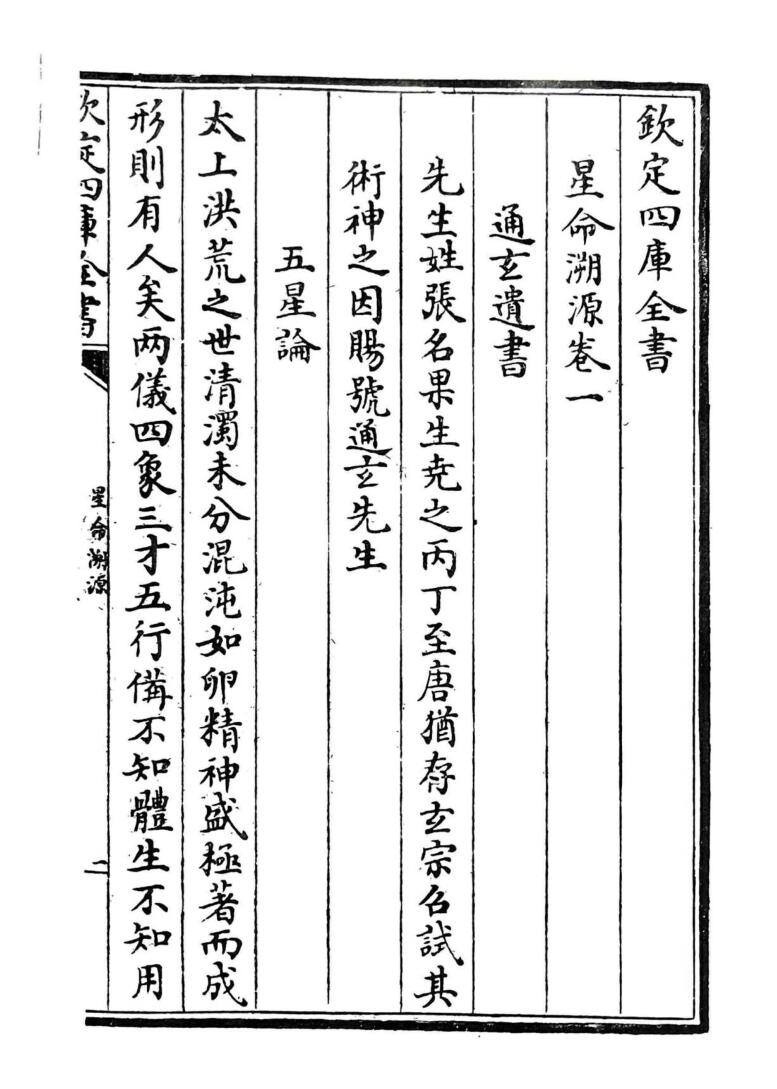 欽定四庫全書
星命溯源卷一
通玄遺書
先生姓張名果生尭之丙丁至唐猶存玄宗召試其
術神之因賜號通玄先生
五星論
太上洪荒之世清濁未分混沌如卵精神盛極著而成
形則有人矣兩儀四象三才五行備不知體生不知用
欽定四庫全書
星命溯源
二